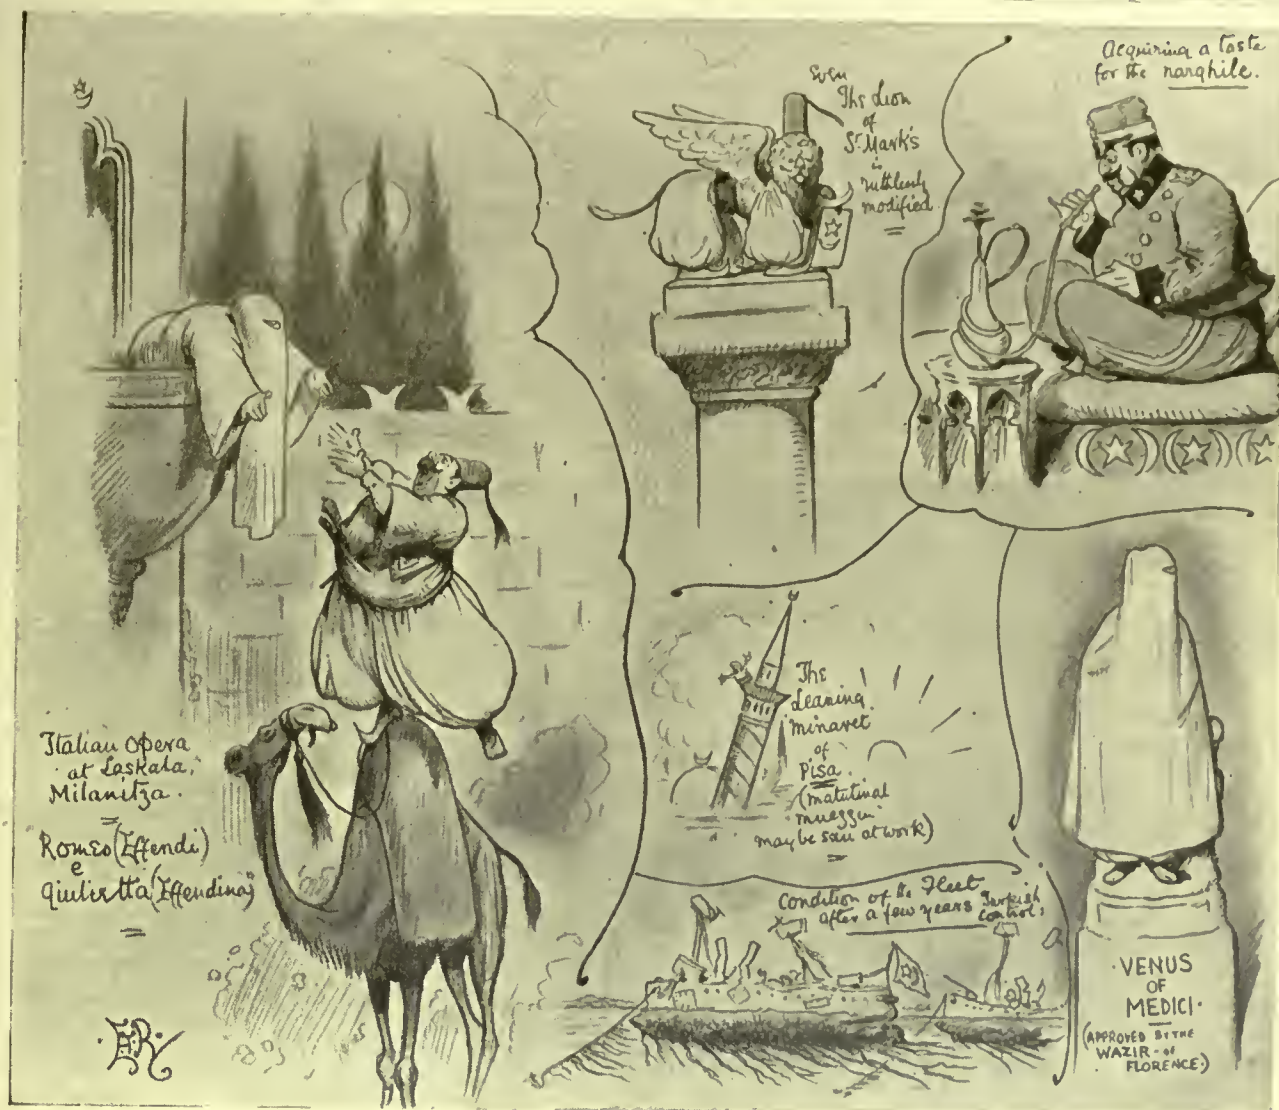 Even
The Lion
of
St. Mark's
is
ruthlessly
modified.
Acquiring a taste
for the narghile.
Italian Opera
at Laskala,
Milanitza.
Romeo (Effendi)
e
Giulietta (Effendina)
The
Leaning
minaret
of
Pisa.
(matutinal
muezzin
may be seen at work)
Condition of the Fleet
after a few years Turkish
control.
·VENUS
OF
MEDICI·
(APPROVED BY THE
WAZIR-of
FLORENCE.)
E.R.